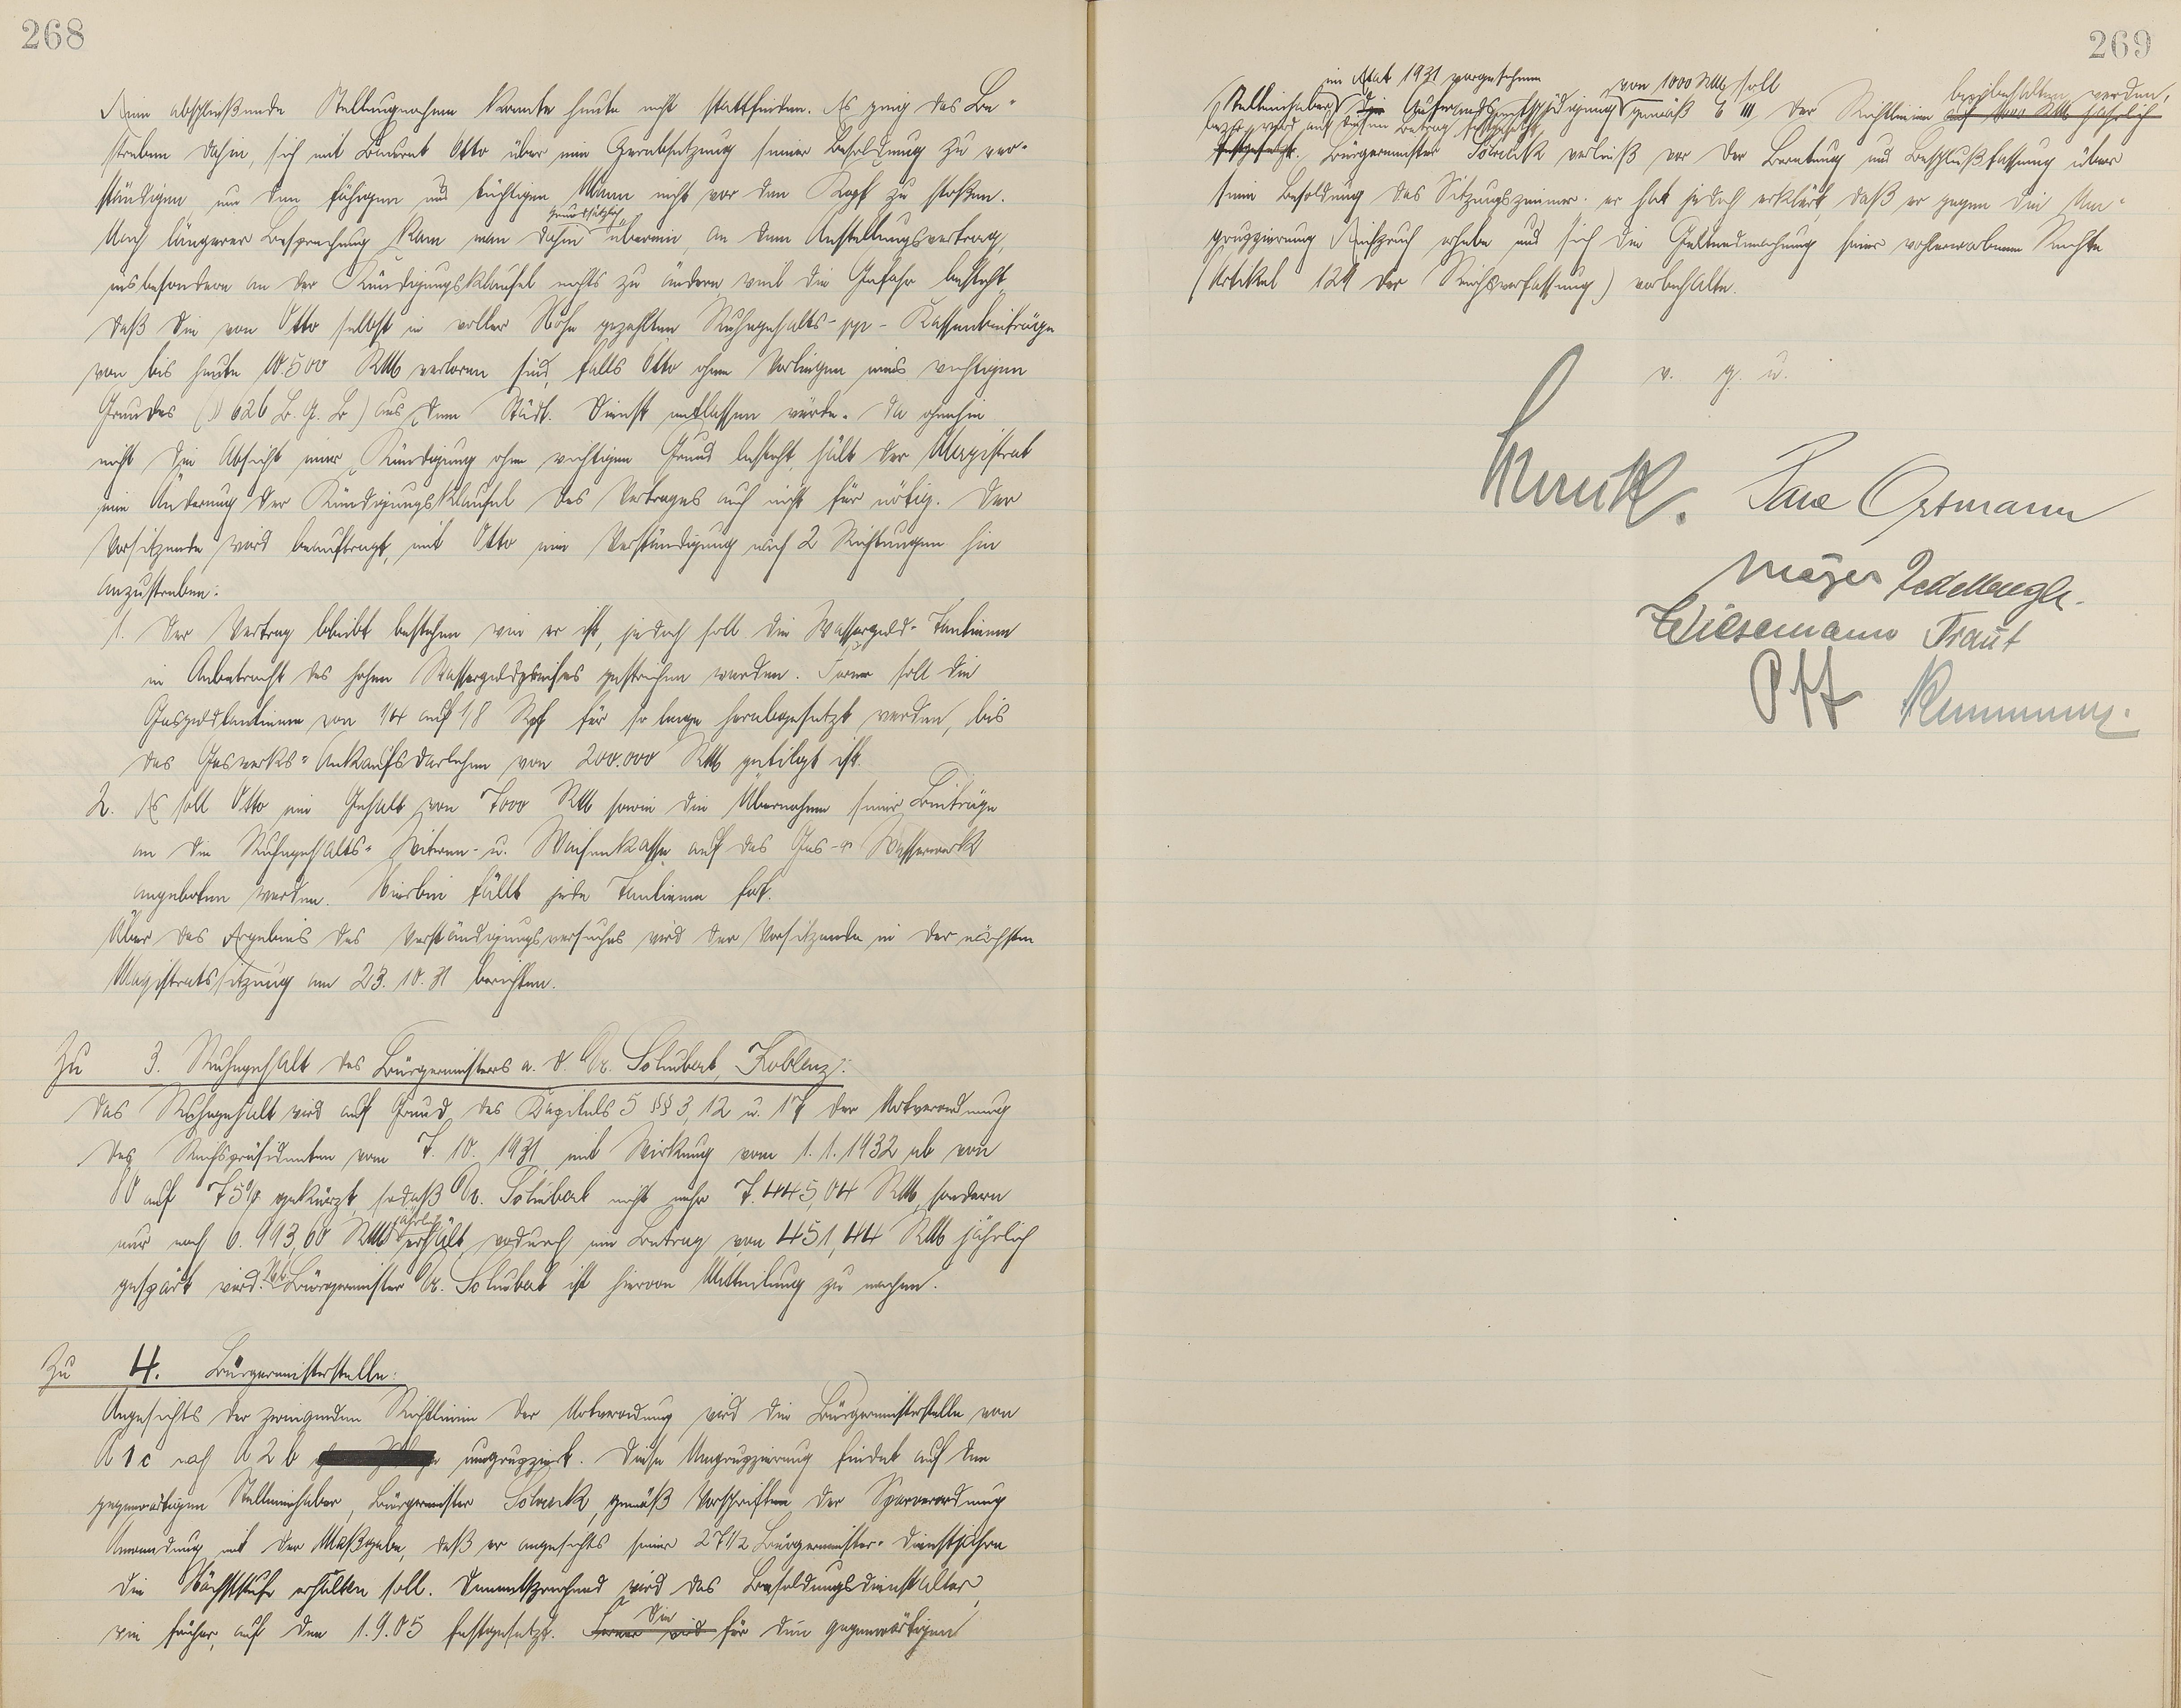 268
Eine abschließende Stellungnahme konnte heute nicht stattfinden. Es ging das Be-
streben dahin, sich mit Baurat Otto über eine Herabsetzung seiner Besoldung zu ver-
ständigen, um den fähigen und tüchtigen Mann nicht vor den Kopf zu stoßen.
Nach längerer Besprechung kam man dahin grundsätzlich überein, an dem Anstellungsvertrag,
insbesondere an der Kündigungsklausel nichts zu ändern weil die Gefahr besteht,
daß die von Otto selbst in voller Höhe gezahlten Ruhegehalts-pp-Kassenbeiträge
von bis heute 10.500 RM verloren sind, falls Otto ohne Vorliegen eines wichtigen
Grundes (§ 626 B. G. B) aus dem Städt. Dienst entlassen würde. Da ohnehin
nicht die Absicht einer Kündigung ohne wichtigen Grund besteht, hält der Magistrat
eine Änderung der Kündigungsklausel des Vertrages auch nicht für nötig. Der
Vorsitzende wird beauftragt, mit Otto eine Verständigung nach 2 Richtungen hin
anzustreben:
1. Der Vertrag bleibt bestehen wie er ist, jedoch soll die Wassergeld-Tantieme
in Anbetracht des hohen Wassergeldpreises gestrichen werden. Ferner soll die
Gasgeldtantieme von 1/4 auf 1/8 Rpf für so lange herabgesetzt werden, bis
das Gaswerks-Ankaufsdarlehen von 200.000 RM getilgt ist.
2. Es soll Otto ein Gehalt von 7000 RM sowie die Übernahme seiner Beiträge
an die Ruhegehalts- Witwen- u. Waisenkasse auf das Gas- u Wasserwerk
angeboten werden. Hierbei fällt jede Tantieme fort.
Über das Ergebnis des Verständigungsversuches wird der Vorsitzende in der nächsten
Magistratssitzung am 23. 10. 31 berichten.
Zu 3. Ruhegehalt des Bürgermeisters a. D. Dr. Koblenz:
Das Ruhegehalt wird auf Grund des Kapitels 5 §§ 3, 12 u. 17 der Notverordnung
des Reichspräsidenten vom 7. 10. 1931 mit Wirkung vom 1. 1. 1932 ab von
80 auf 75% gekürzt, sodaß Dr. nicht mehr 7.445,04 RM, sondern
nur noch 6.993,60 RM jährlich erhält, wodurch ein Betrag von 451,44 RM jährlich
gespart wird. Bürgermeister Dr. ist hiervon Mitteilung zu machen.
Zu 4. Bürgermeisterstelle:
Angesichts der zwingenden Richtlinien der Notverordnung wird die Bürgermeisterstelle von
A 1 c nach A 2 b umgruppiert. Diese Umgruppierung findet auf den
gegenwärtigen Stelleninhaber, Bürgermeister gemäß Vorschriften der Sparverordnung
Anwendung mit der Maßgabe, daß er angesichts seiner 27 1/2 Bürgermeister-Dienstjahre
die Höchststufe erhalten soll. Dementsprechend wird das Besoldungsdienstalter,
wie früher, auf den 1.9.05 festgesetzt. Ferner wird Die für den gegenwärtigen
269
im Etat 1931 vorgesehene von 1000 RM soll beibehalten werden,
Stelleninhaber die Aufwandsentschädigung gemäß 6 III der Richtlinien auf 1000 RM jährlich
bezw. wird auf diesen Betrag festgesetzt.
festgesetzt. Bürgermeister verließ vor der Beratung und Beschlußfassung über
seine Besoldung das Sitzungszimmer. er hat jedoch erklärt, daß er gegen die Um-
gruppierung Einspruch erhebe und sich die Geltendmachung seiner wohlerworbenen Rechte
(Artikel 129 der Reichsverfassung) vorbehalte.
v. g. u.
Ortmann
Meyer
Wiesemann Traut